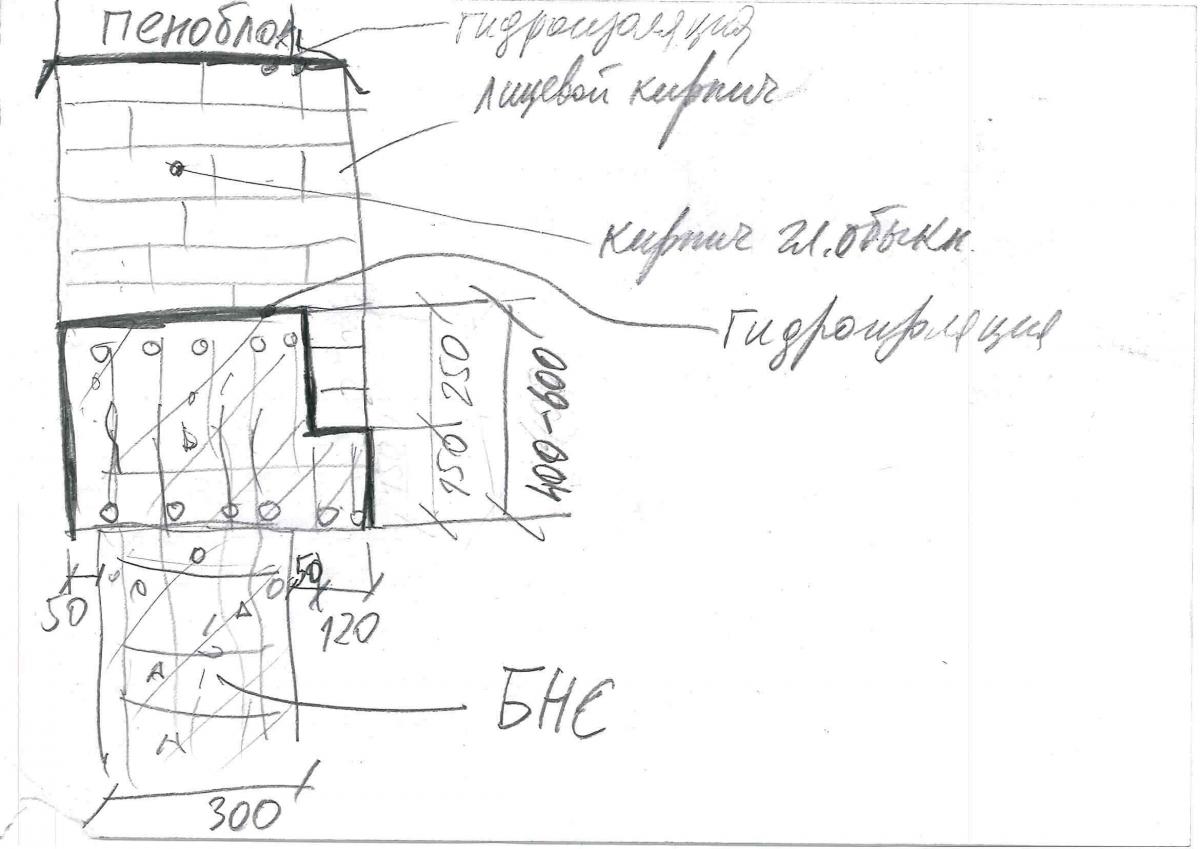 пеноблок
гидроизоляция
лицевой кирпич
кирпич гл. обыкн.
Гидроизоляция
250
150
400-600
50
50
120
БНС
300